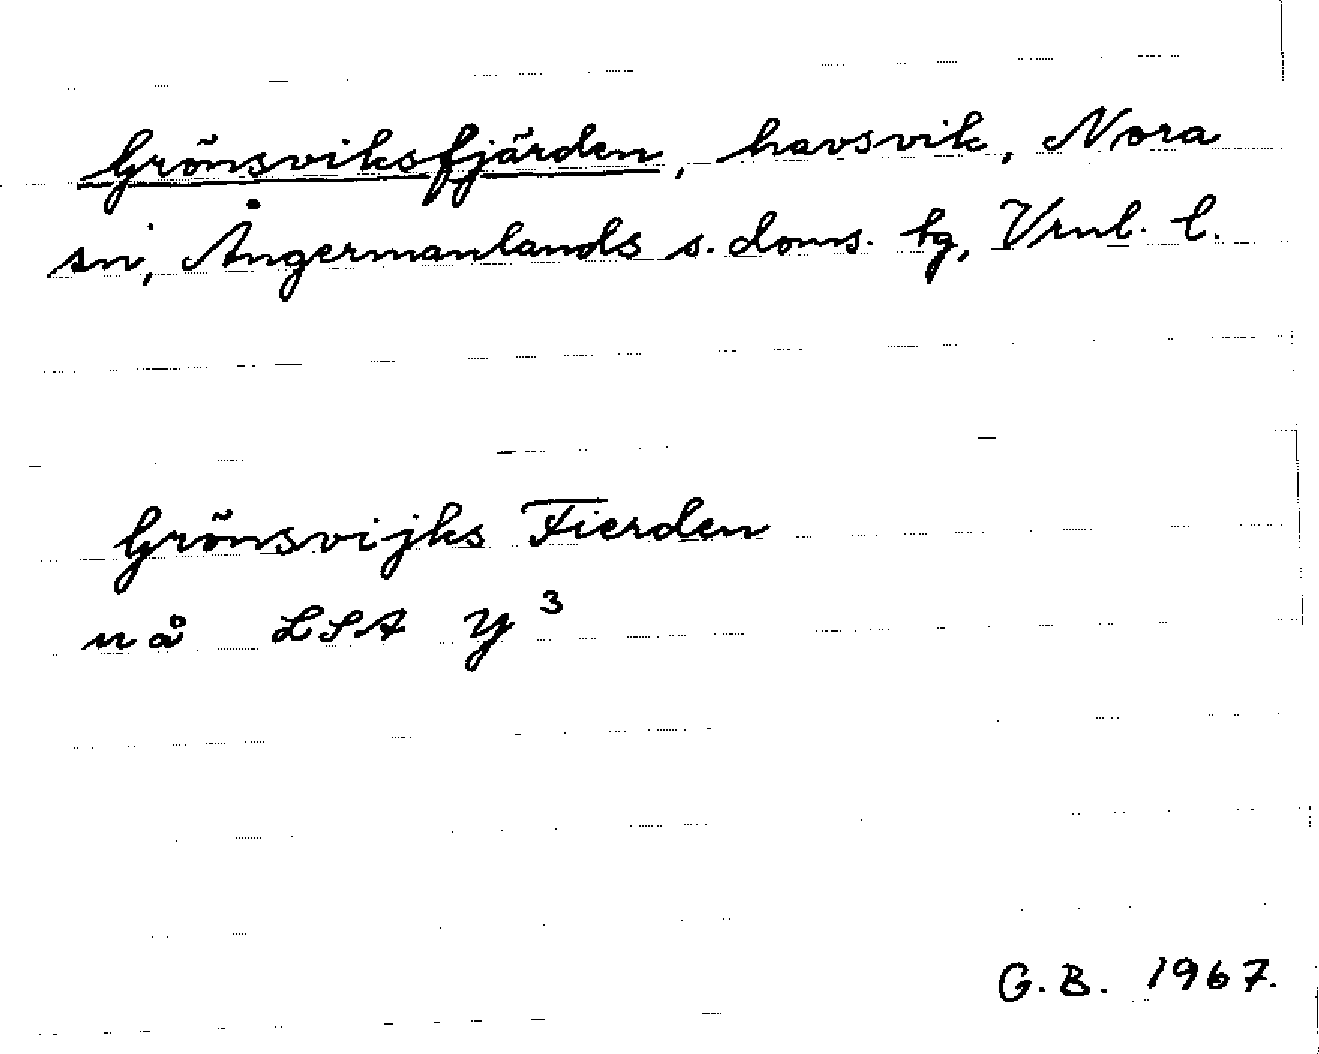 Grönsviksfjärden, havsvik, Nora
sn, Ångermanlands s. doms. tg, Vrnl. l.
Grönsvijks Fierden
nå LSA Y 3
G.B. 1967.